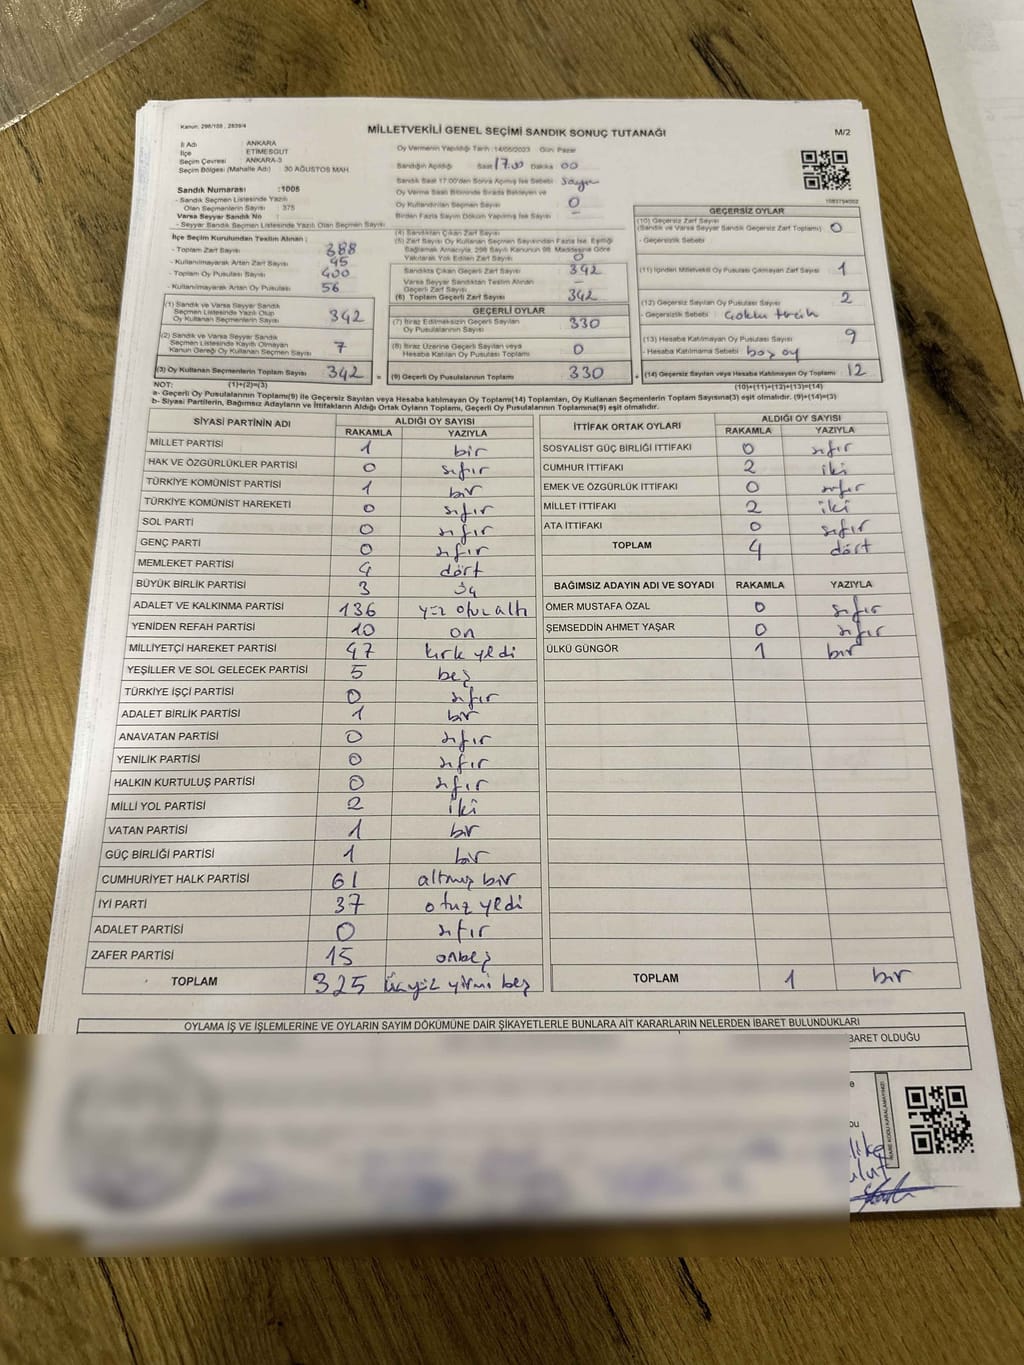 Kanun: 298/105 , 2839/4
MİLLETVEKİLİ GENEL SEÇİMİ SANDIK SONUÇ TUTANAĞI
M/2
İl Adı : ANKARA
İlçe : ETİMESGUT
Seçim Çevresi : ANKARA-3
Seçim Bölgesi (Mahalle Adı) : 30 AĞUSTOS MAH.
Sandık Numarası :1005
- Sandık Seçmen Listesinde Yazılı
Olan Seçmenlerin Sayısı : 375
Varsa Seyyar Sandık No :
- Seyyar Sandık Seçmen Listesinde Yazılı Olan Seçmen Sayısı :
İlçe Seçim Kurulundan Teslim Alınan :
- Toplam Zarf Sayısı : 388
- Kullanılmayarak Artan Zarf Sayısı : 45
- Toplam Oy Pusulası Sayısı : 400
- Kullanılmayarak Artan Oy Pusulası : 56
(1) Sandık ve Varsa Seyyar Sandık
Seçmen Listesinde Yazılı Olup
Oy Kullanan Seçmenlerin Sayısı : 342
(2) Sandık ve Varsa Seyyar Sandık
Seçmen Listesinde Kayıtlı Olmayan
Kanun Gereği Oy Kullanan Seçmen Sayısı : 7
(3) Oy Kullanan Seçmenlerin Toplam Sayısı : 342
Oy Vermenin Yapıldığı Tarih :14/05/2023 Gün: Pazar
Sandığın Açıldığı Saat 17.00 Dakika 00
Sandık Saat 17:00'den Sonra Açılmış İse Sebebi :
Oy Verme Saati Bitiminde Sırada Bekleyen ve
Oy Kullandırılan Seçmen Sayısı : 0
Birden Fazla Sayım Döküm Yapılmış İse Sayısı : –
(4) Sandıktan Çıkan Zarf Sayısı :
(5) Zarf Sayısı Oy Kullanan Seçmen Sayısından Fazla İse, Eşitliği
Sağlamak Amacıyla, 298 Sayılı Kanunun 98. Maddesine Göre
Yakılarak Yok Edilen Zarf Sayısı : 0
Sandıkta Çıkan Geçerli Zarf Sayısı : 342
Varsa Seyyar Sandıktan Teslim Alınan
Geçerli Zarf Sayısı : –
(6) Toplam Geçerli Zarf Sayısı : 342
GEÇERLİ OYLAR
(7) İtiraz Edilmeksizin Geçerli Sayılan
Oy Pusulalarının Sayısı : 330
(8) İtiraz Üzerine Geçerli Sayılan veya
Hesaba Katılan Oy Pusulası Toplamı : 0
= (9) Geçerli Oy Pusulalarının Toplamı : 330
1083754002
GEÇERSİZ OYLAR
(10) Geçersiz Zarf Sayısı
(Sandık ve Varsa Seyyar Sandık Geçersiz Zarf Toplamı) : 0
- Geçersizlik Sebebi :
(11) İçinden Milletvekili Oy Pusulası Çıkmayan Zarf Sayısı : 1
(12) Geçersiz Sayılan Oy Pusulası Sayısı : 2
- Geçersizlik Sebebi : çoklu tercih
(13) Hesaba Katılmayan Oy Pusulası Sayısı : 9
- Hesaba Katılmama Sebebi : boş oy
+ (14) Geçersiz Sayılan veya Hesaba Katılmayan Oy Toplamı : 12
NOT: (1)+(2)=(3) (10)+(11)+(12)+(13)=(14)
a- Geçerli Oy Pusulalarının Toplamı(9) ile Geçersiz Sayılan veya Hesaba katılmayan Oy Toplamı(14) Toplamları, Oy Kullanan Seçmenlerin Toplam Sayısına(3) eşit olmalıdır. (9)+(14)=(3)
b- Siyasi Partilerin, Bağımsız Adayların ve İttifakların Aldığı Ortak Oyların Toplamı, Geçerli Oy Pusulalarının Toplamına(9) eşit olmalıdır.
SİYASİ PARTİNİN ADI ALDIĞI OY SAYISI
RAKAMLA YAZIYLA
MİLLET PARTİSİ 1 bir
HAK VE ÖZGÜRLÜKLER PARTİSİ 0 sıfır
TÜRKİYE KOMÜNİST PARTİSİ 1 bir
TÜRKİYE KOMÜNİST HAREKETİ 0 sıfır
SOL PARTİ 0 sıfır
GENÇ PARTİ 0 sıfır
MEMLEKET PARTİSİ 4 dört
BÜYÜK BİRLİK PARTİSİ 3 üç
ADALET VE KALKINMA PARTİSİ 136 yüz otuz altı
YENİDEN REFAH PARTİSİ 10 on
MİLLİYETÇİ HAREKET PARTİSİ 47 kırk yedi
YEŞİLLER VE SOL GELECEK PARTİSİ 5 beş
TÜRKİYE İŞÇİ PARTİSİ 0 sıfır
ADALET BİRLİK PARTİSİ 1 bir
ANAVATAN PARTİSİ 0 sıfır
YENİLİK PARTİSİ 0 sıfır
HALKIN KURTULUŞ PARTİSİ 0 sıfır
MİLLİ YOL PARTİSİ 2 iki
VATAN PARTİSİ 1 bir
GÜÇ BİRLİĞİ PARTİSİ 1 bir
CUMHURİYET HALK PARTİSİ 61 altmış bir
İYİ PARTİ 37 otuz yedi
ADALET PARTİSİ 0 sıfır
ZAFER PARTİSİ 15 onbeş
TOPLAM 325 üçyüz yirmi beş
İTTİFAK ORTAK OYLARI ALDIĞI OY SAYISI
RAKAMLA YAZIYLA
SOSYALİST GÜÇ BİRLİĞİ İTTİFAKI 0 sıfır
CUMHUR İTTİFAKI 2 iki
EMEK VE ÖZGÜRLÜK İTTİFAKI 0 sıfır
MİLLET İTTİFAKI 2 iki
ATA İTTİFAKI 0 sıfır
TOPLAM 4 dört
BAĞIMSIZ ADAYIN ADI VE SOYADI RAKAMLA YAZIYLA
ÖMER MUSTAFA ÖZAL 0 sıfır
ŞEMSEDDİN AHMET YAŞAR 0 sıfır
ÜLKÜ GÜNGÖR 1 bir
TOPLAM 1 bir
OYLAMA İŞ VE İŞLEMLERİNE VE OYLARIN SAYIM DÖKÜMÜNE DAİR ŞİKAYETLERLE BUNLARA AİT KARARLARIN NELERDEN İBARET BULUNDUKLARI
BARET OLDUĞU